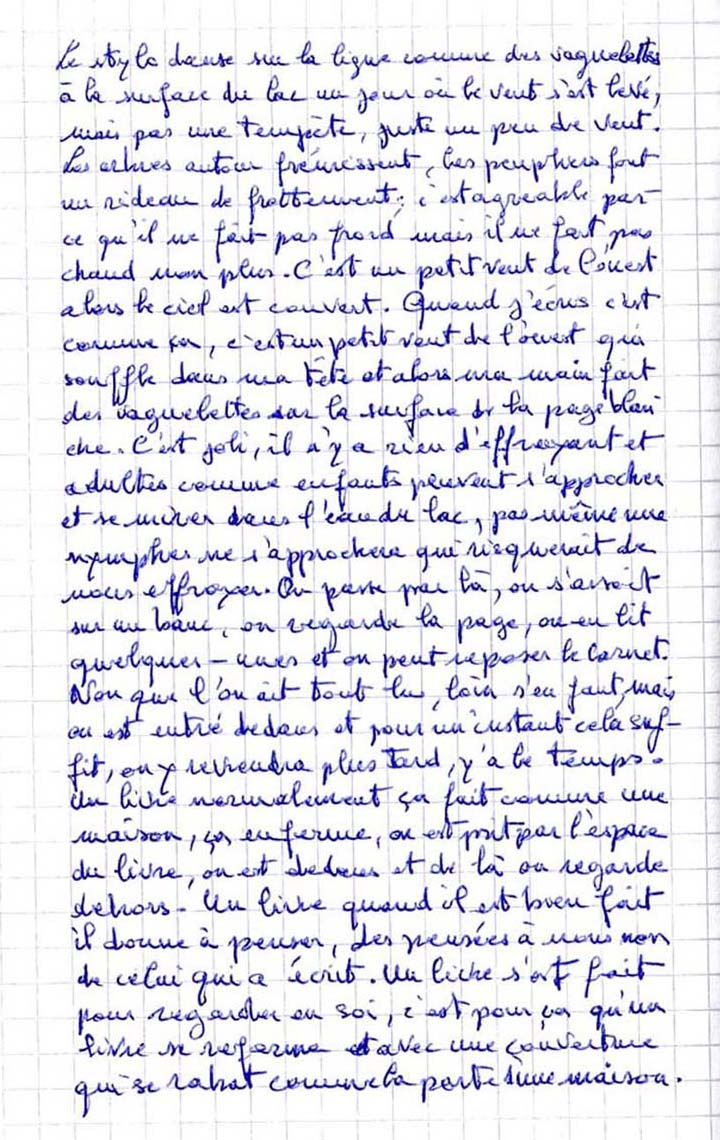 Le stylo danse sur la ligne comme des vaguelettes
à la surface du lac un jour où le vent s'est levé,
mais pas une tempête, juste un peu de vent.
Les arbres autour frémissent, les peupliers font
un rideau de frottement ; c'est agréable par-
ce qu'il ne fait pas froid mais il ne fait pas
chaud non plus. C'est un petit vent de l'ouest
alors le ciel est couvert. Quand j'écris c'est
comme ça, c'est un petit vent de l'ouest qui
souffle dans ma tête et alors ma main fait
des vaguelettes sur la surface de la page blan
che. C'est joli, il n'y a rien d'effrayant et
adultes comme enfants peuvent s'approcher
et se mirer dans l'eau du lac, pas même une
nymphe ne s'approchera qui risquerait de
nous effrayer. On passe par là, on s'assoit
sur un banc, on regarde la page, on en lit
quelques-unes et on peut reposer le carnet.
Non que l'on ait tout lu, loin s'en faut, mais
on est entré dedans et pour un instant cela suf-
fit, on y reviendra plus tard, y'a le temps.
Un livre normalement ça fait comme une
maison, ça enferme, on est prit par l'espace
du livre, on est dedans et de là on regarde
dehors. Un livre quand il est bien fait
il donne à penser, des pensées à nous non
de celui qui a écrit. Un livre s'est fait
pour regarder en soi, c'est pour ça qu'un
livre se referme et avec une couverture
qui se rabat comme la porte d'une maison.